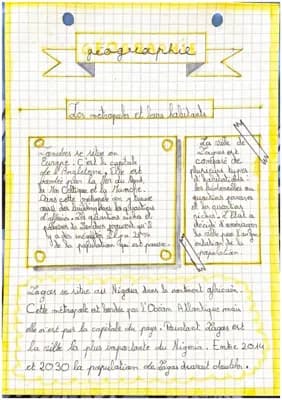 géographie
Les métropoles et leurs habitants
Londres se situe en
Europe. C'est la capitale
de l'Angleterre. Elle est
bordée par la Mer du Nord,
la Mer Celtique et la Manche.
Dans cette métropole on y trouve
aussi des
d'affaires. Les quartiers riches et
pauvres de Londres
de la population qui est pauvre.
La ville de
Lagos est
composé de
plusieurs types
d'habitats
les bidonvilles ou
quartiers pauvres
les quartiers
riches. L'Etat a
décidé d'aménager
la ville pour l'augm
entation de la
population.
Lagos se situe au Nigeria dans le continent africain.
Cette métropole est bordée par l'Océan Atlantique mais
elle n'est pas la capitale du pays. Pourtant Lagos est
la ville la plus importante du Nigeria. Entre 2014
et 2030 la population de Lagos devrait doubler.